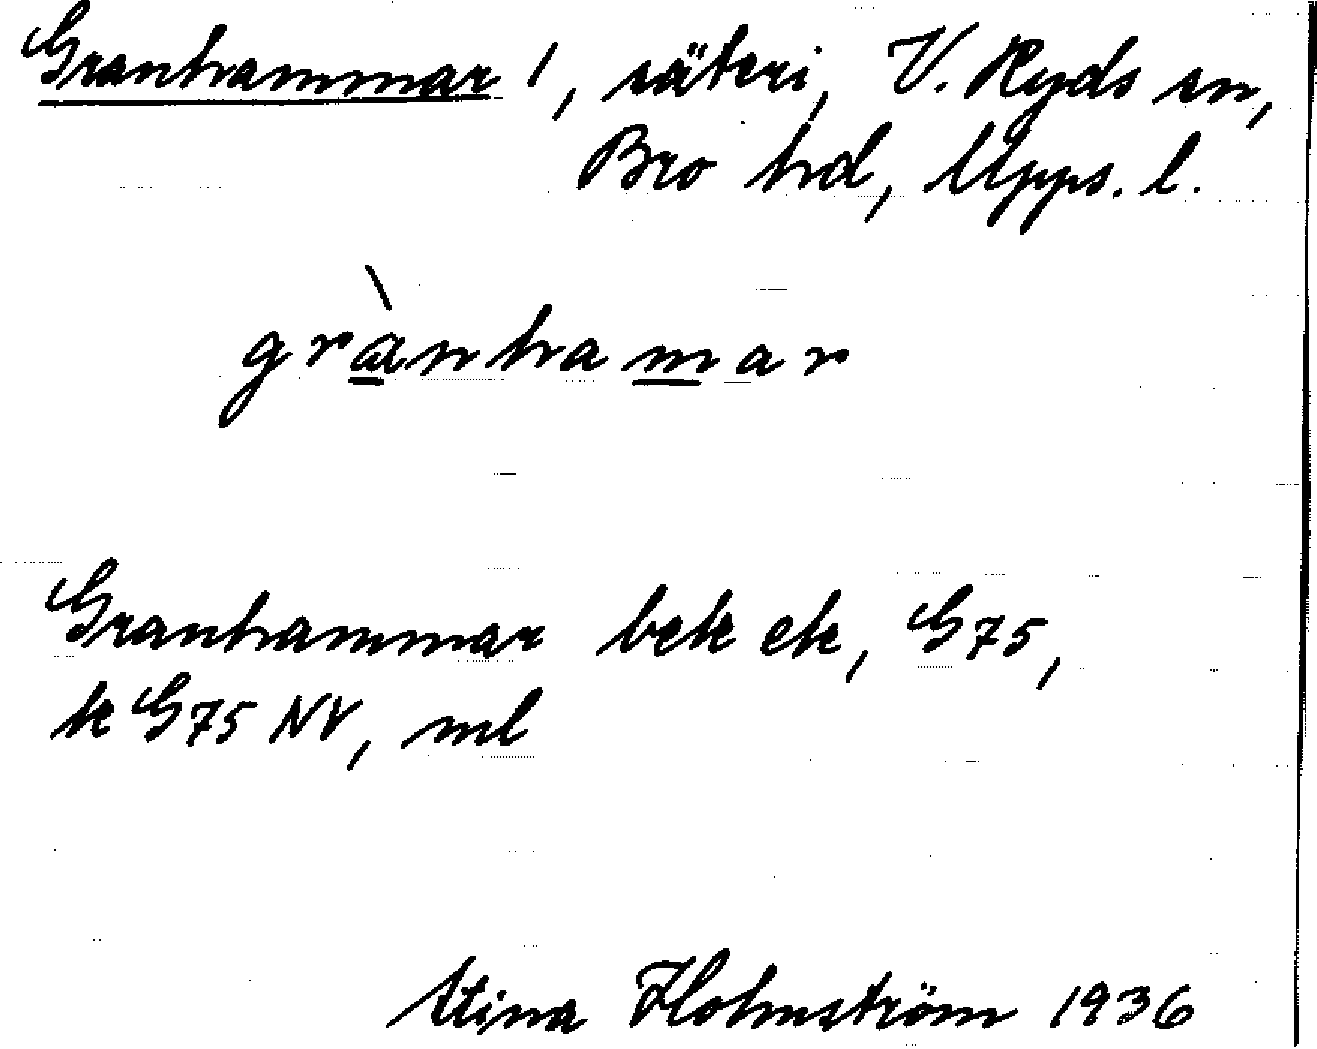 Granhammar 1, säteri, V. Ryds sn,
Bro hd, Upps. l.
grànhamar
Granhammar bek ek, G75,
k G75 NV, ml
Stina Holmström 1936